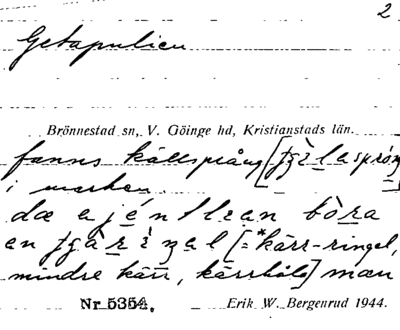 2
Getapulien
Brönnestad sn, V. Göinge hd, Kristianstads län.
fanns källsprång [
i marken
dæ a jéntlıan bòra
en [= *kärr-ringel,
mindre kärr, kärrhåla] man
Nr 5354. Erik W. Bergenrud 1944.